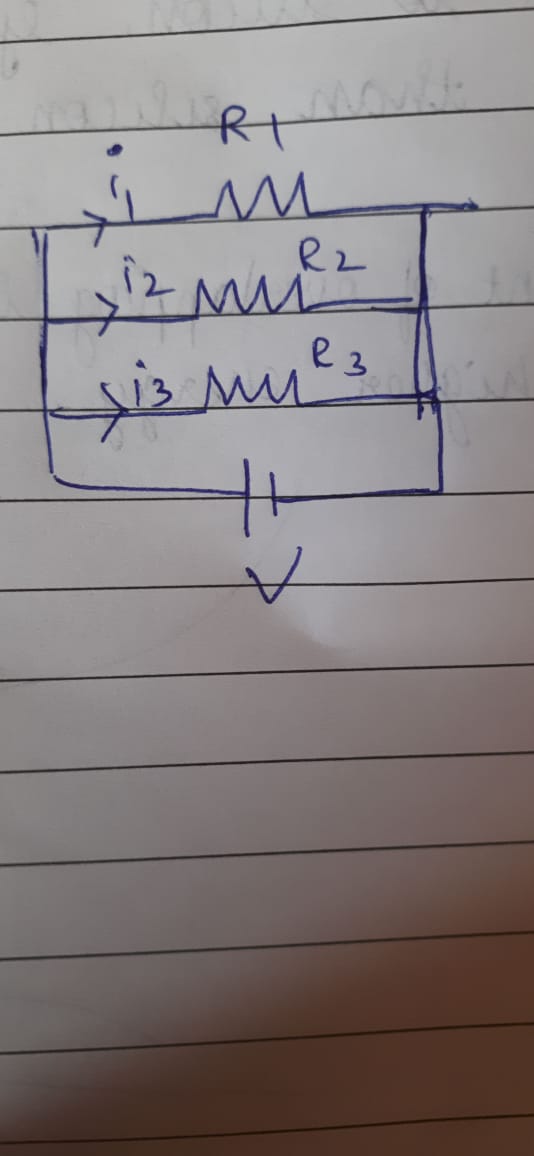 R1
i1
R2
i2
R3
i3
V